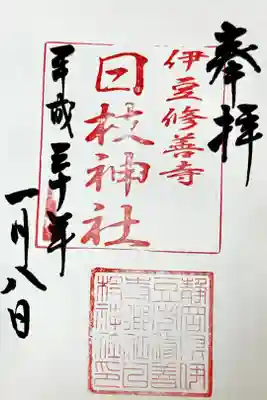 奉拝
伊豆修善寺
日枝神社
平成三十年
一月八日